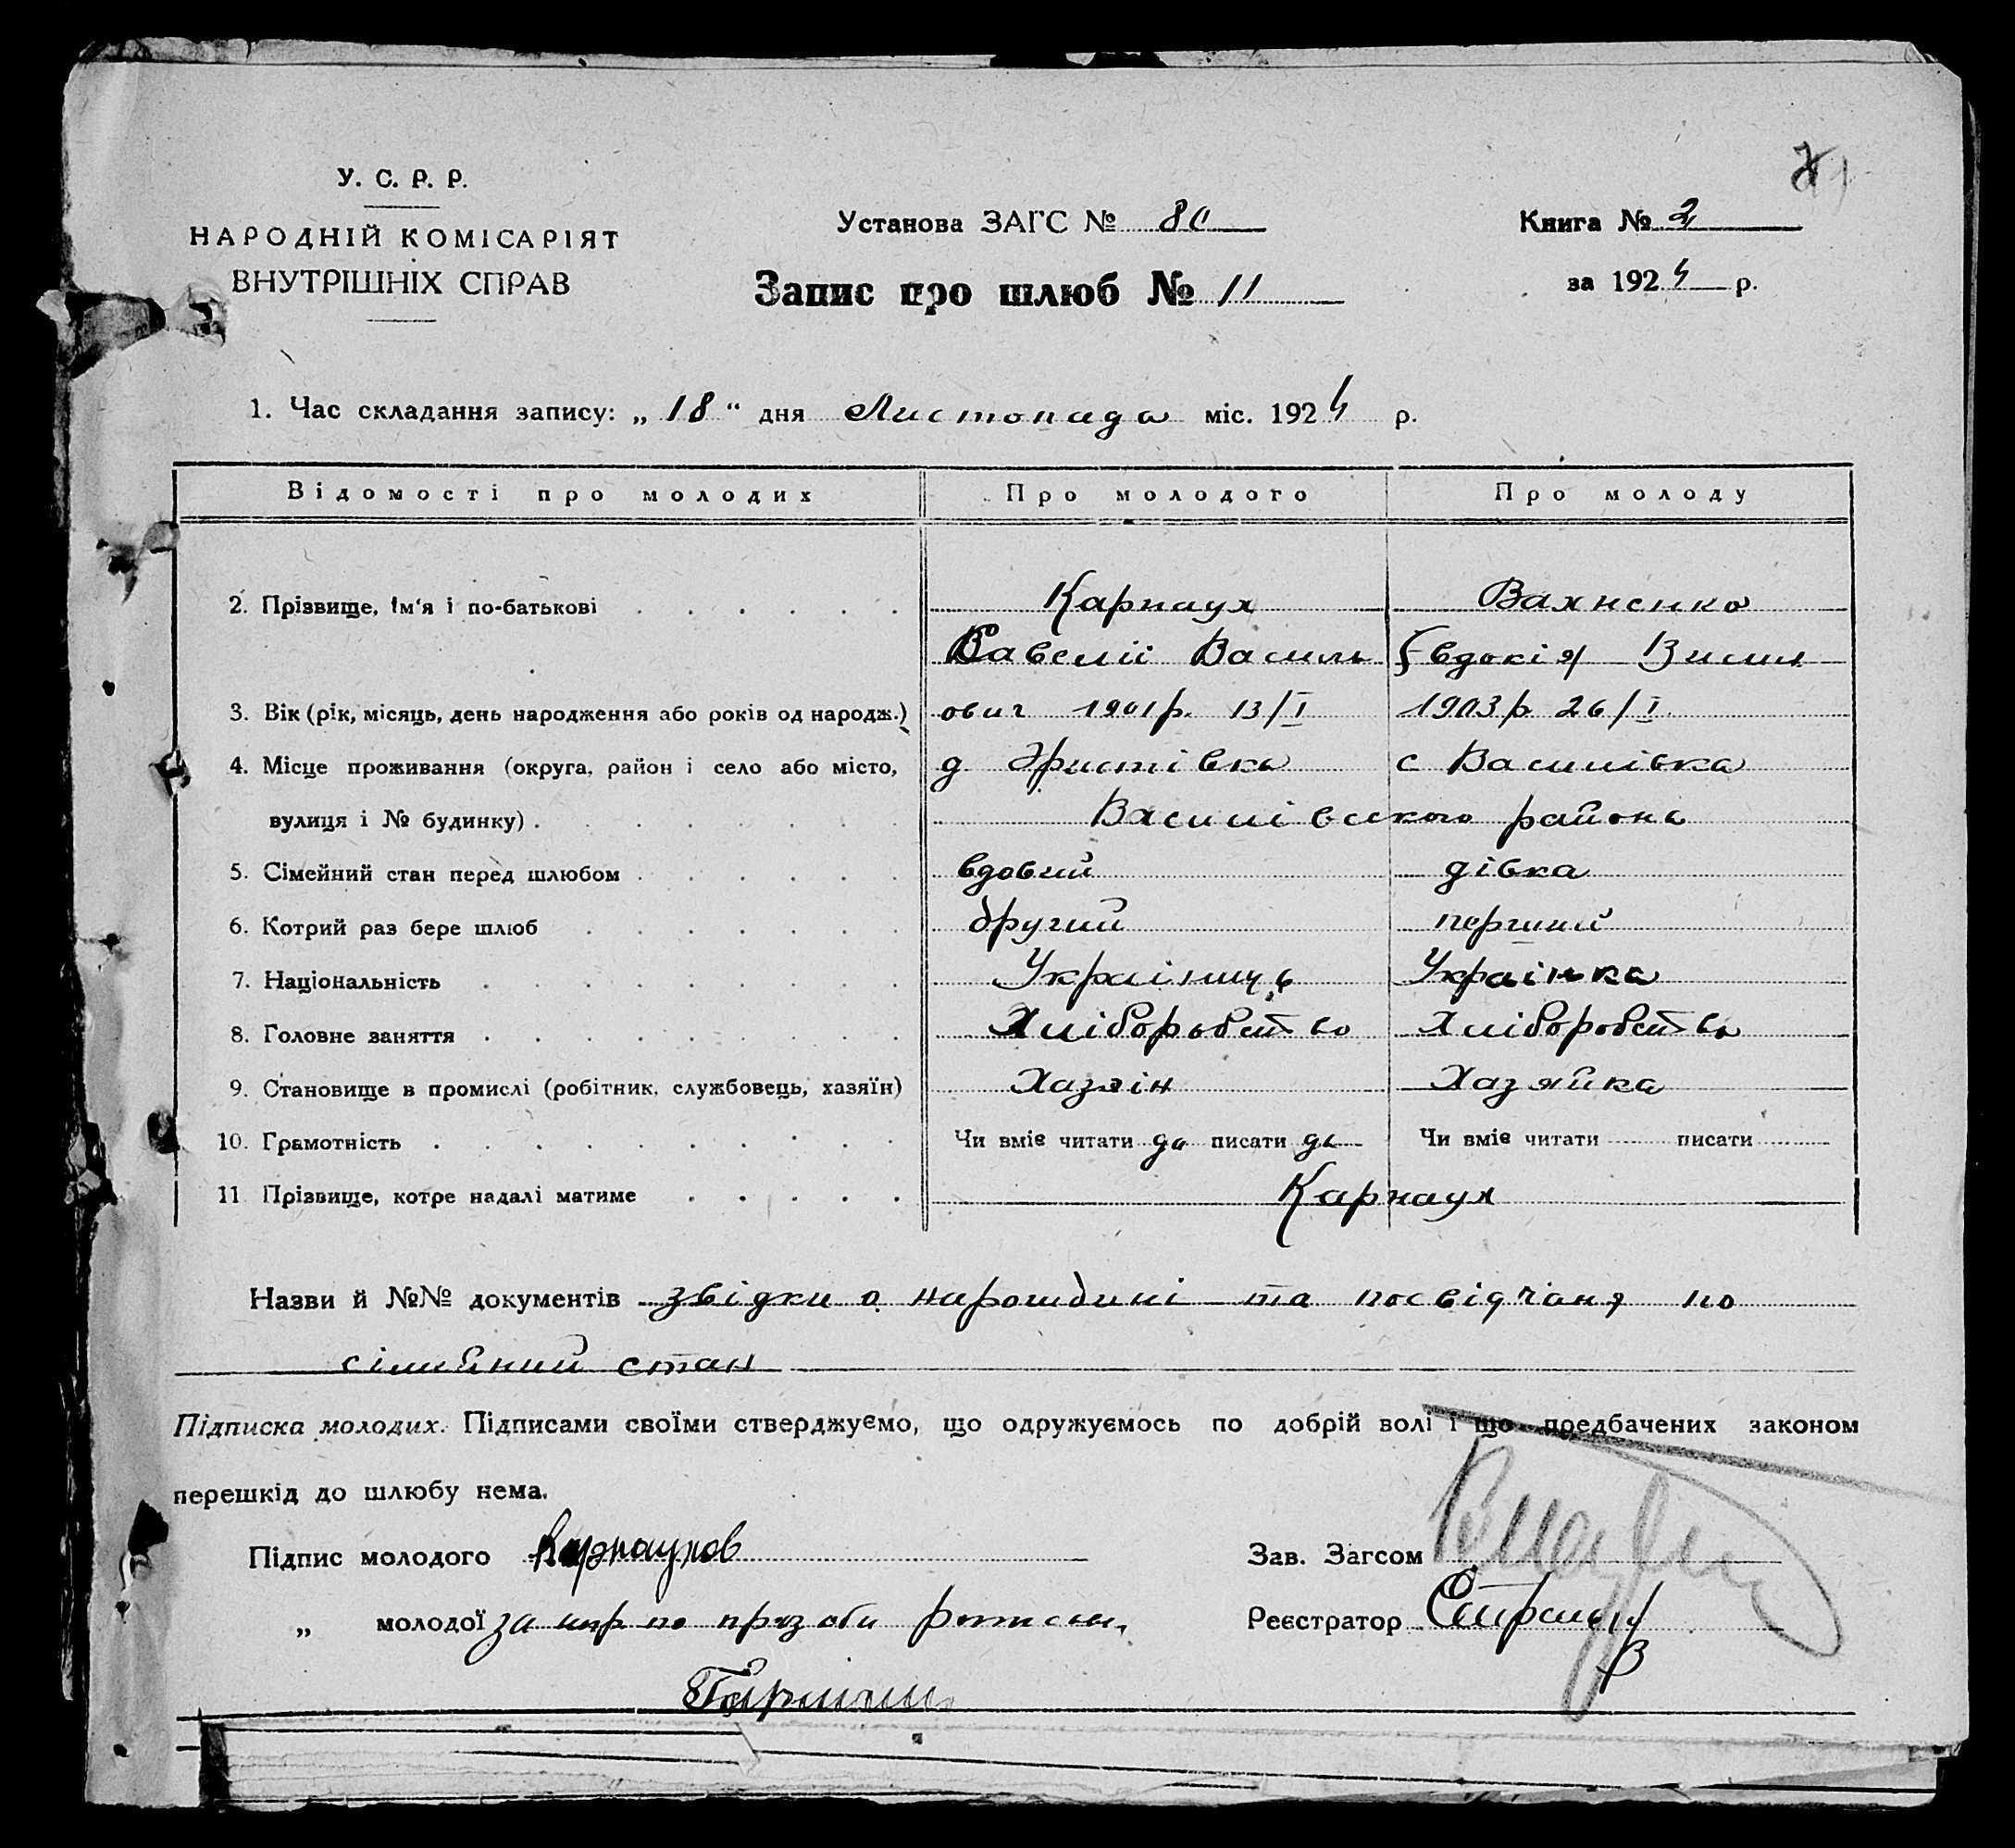 У. С. Р. Р.
НАРОДНІЙ КОМІСАРІЯТ
ВНУТРІШНІХ СПРАВ
Установа ЗАГС № 80
Запис про шлюб № 11
Книга № 2
за 1924 р.
1. Час складання запису: „ 18 “ дня Листопада міс. 1924 р.
Відомості про молодих Про молодого Про молоду
2. Прізвище, ім‘я і по-батькові Карнаух Вахненко
Савелій Василь Євдокія Васил
3. Вік (рік, місяць, день народження або років од народж.) ович 1901 р. 13/I 1903 р. 26/I
4. Місце проживання (округа, район і село або місто, д. Христівка с Василівка
вулиця і № будинку) Василівського района
5. Сімейний стан перед шлюбом вдовий дівка
6. Котрий раз бере шлюб другий первий
7. Національність Українець Українка
8. Головне заняття Хліборобство Хліборобство
9. Становище в промислі (робітник, службовець, хазяїн) Хазяін Хазяйка
10. Грамотність Чи вміє читати да писати да Чи вміє читати писати
11 Прізвище, котре надалі матиме Карнаух
Назви й №№ документів звідки о нарождині та посвідчаня по
сімейний стан
Підписка молодих. Підписами своїми стверджуємо, що одружуємось по добрій волі і що предбачених законом
перешкід до шлюбу нема.
Підпис молодого Карнаухов
Зав. Загсом
„ молодої за нгр по прозьби
Реєстратор